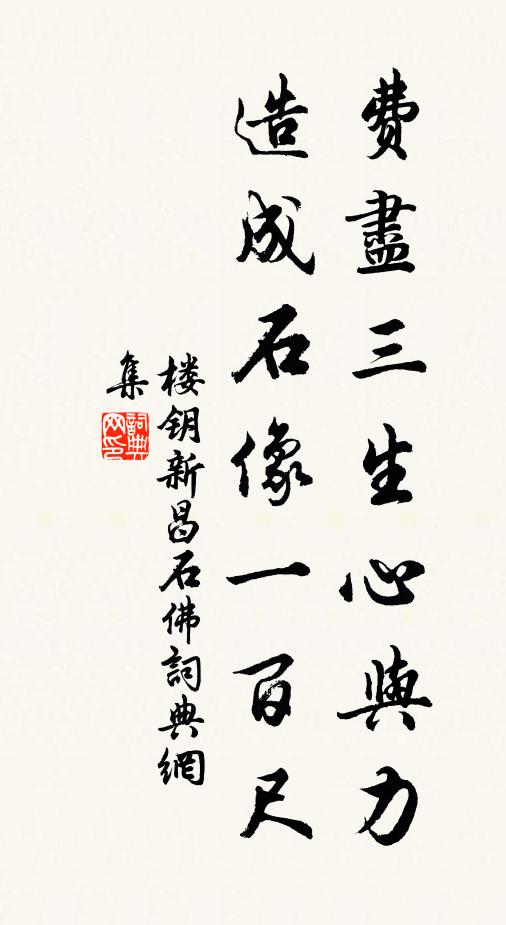 費盡三生心與力
造成石像一百尺
楼钥新昌石佛詞典網
集
詞典
网印